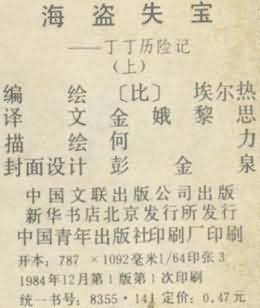 海盗失宝
——丁丁历险记
(上)
编绘〔比〕埃尔热
译文金娥黎思
描绘何力
封面设计彭金泉
中国文联出版公司出版
新华书店北京发行所发行
中国青年出版社印刷厂印刷
开本：787×1092毫米1/64印张3
1984年12月第1版第1次印刷
统一书号：8355·141定价：0.47元